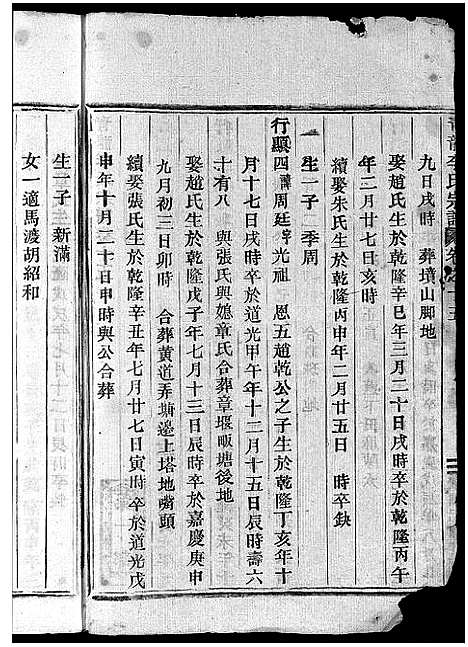 李氏宗譜
九日戌時 葬墳山脚地
娶趙氏生於乾隆辛巳年三月二十日戌時卒於乾隆丙午
年二月廿七日亥時
續娶朱氏生於乾隆丙申年二月廿五日 時卒缺
生一子 季周
行顯四諱周廷字光祖 恩五趙乾公之子生於乾隆丁亥年十
月十七日戌時卒於道光甲午年十二月十五日辰時壽六
十有八 與張氏與嬔章氏合葬章堰畈塘後地
娶趙氏生於乾隆戊子年七月十三日辰時卒於嘉慶庚申
九月初三日卯時 合葬黃道弄塘邊上塔地嘴頭
續娶張氏生於乾隆辛丑年七月廿七日寅時卒於道光戊
申年十月二十日申時與公合葬
生一子 新滿
女一適馬渡胡紹和